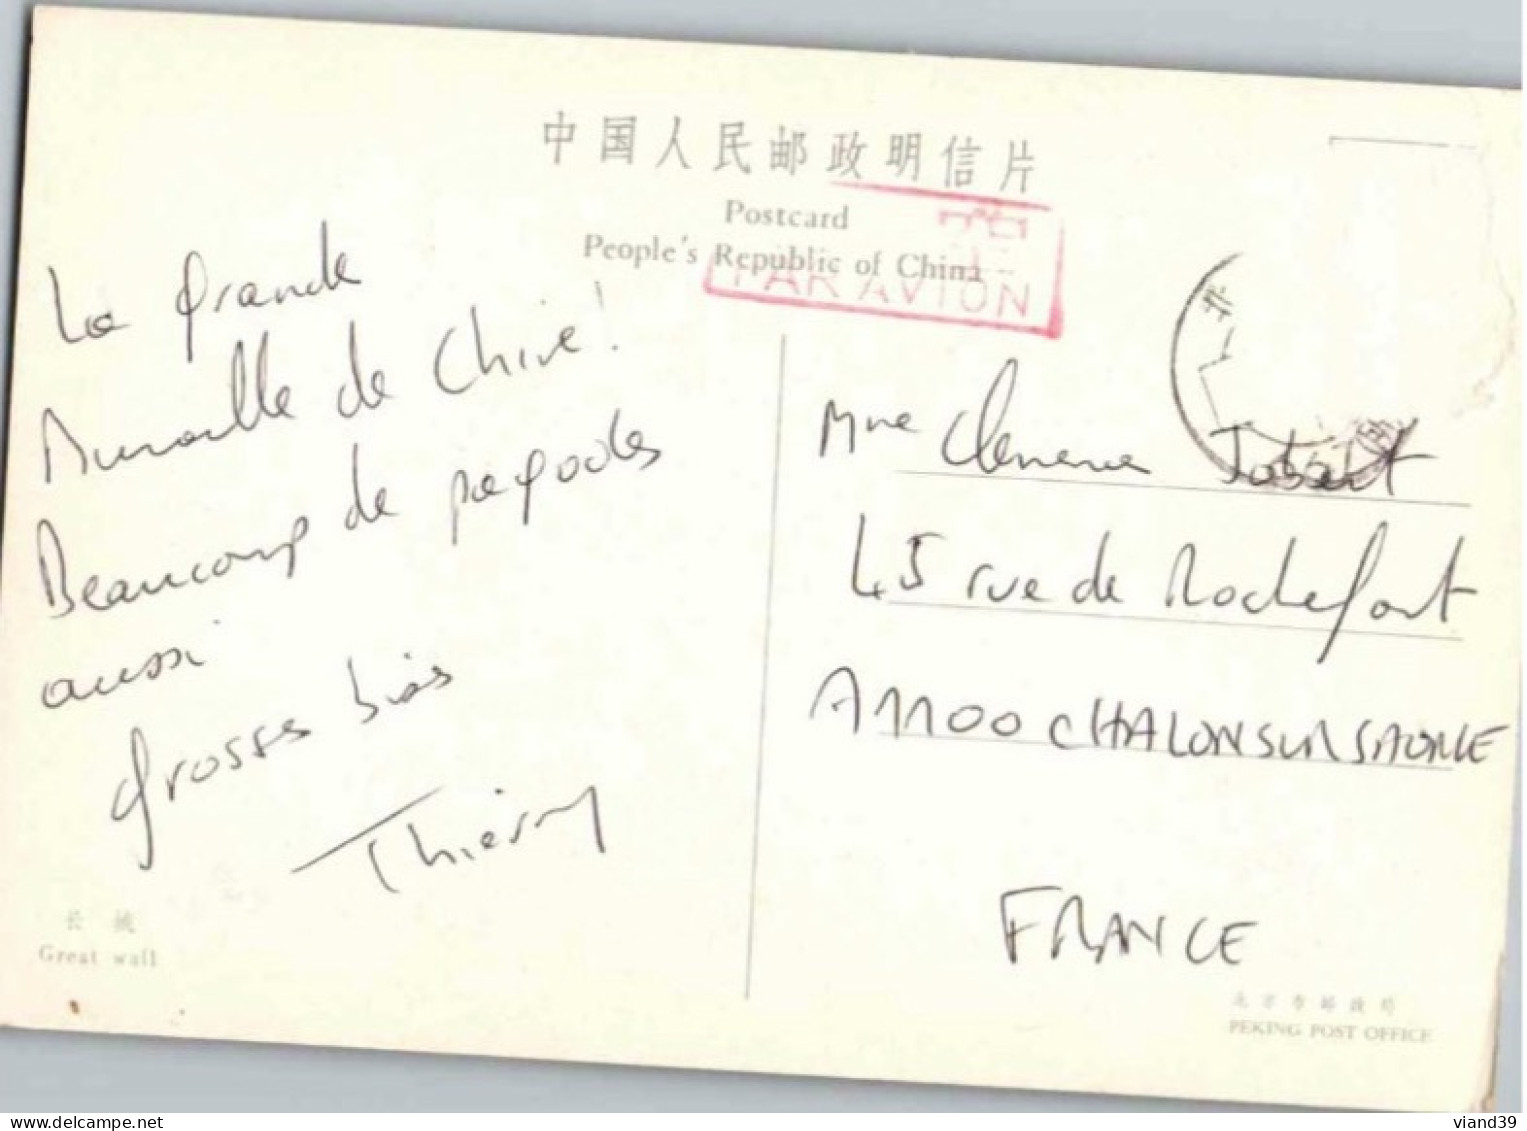 中国人民邮政明信片
Postcard
People's Republic of China
PAR AVION
La grande
Muraille de Chine!
Beaucoup de pagodes
aussi
Grosses bises
Thierry
长城
Great wall
北
Mme Clemence Jobert
45 rue de Rochefort
71100 CHALON SUR SAONE
FRANCE
北京市邮政局
PEKING POST OFFICE
viand39